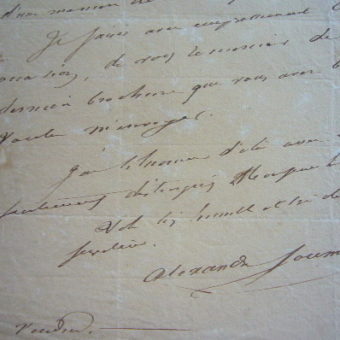 d'une manière de
Je saisis avec empressement
de vous remercier de
dernière brochure que vous avez b
voulu m'envoyer.
J'ai l'honneur d'être avec
sentiments distingués
Votre très humble et très
serviteur.
Alexandre Soum
Vendredi.